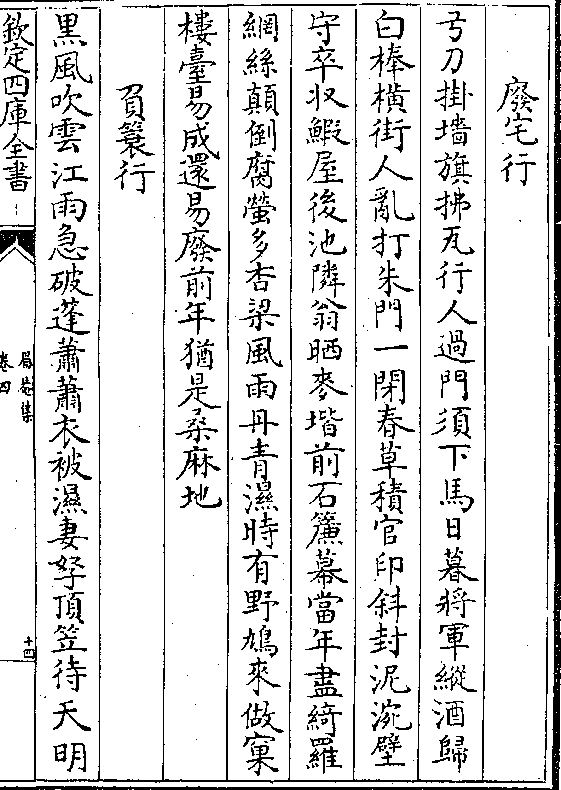 廢宅行
弓刀掛墻旗拂瓦行人過門須下馬日暮將軍縱酒歸
白棒橫街人亂打朱門一閉春草積官印斜封泥涴壁
守卒收鰕屋後池隣翁晒麥堦前石簾幕當年盡綺羅
網絲顛倒腐螢多杏梁風雨丹青濕時有野鳩來做窠
樓臺易成還易廢前年猶是桑麻地
負蓑行
黒風吹雲江雨急破蓬蕭蕭衣被濕妻孥頂笠待天明
欽定四庫全書
卷四
十四